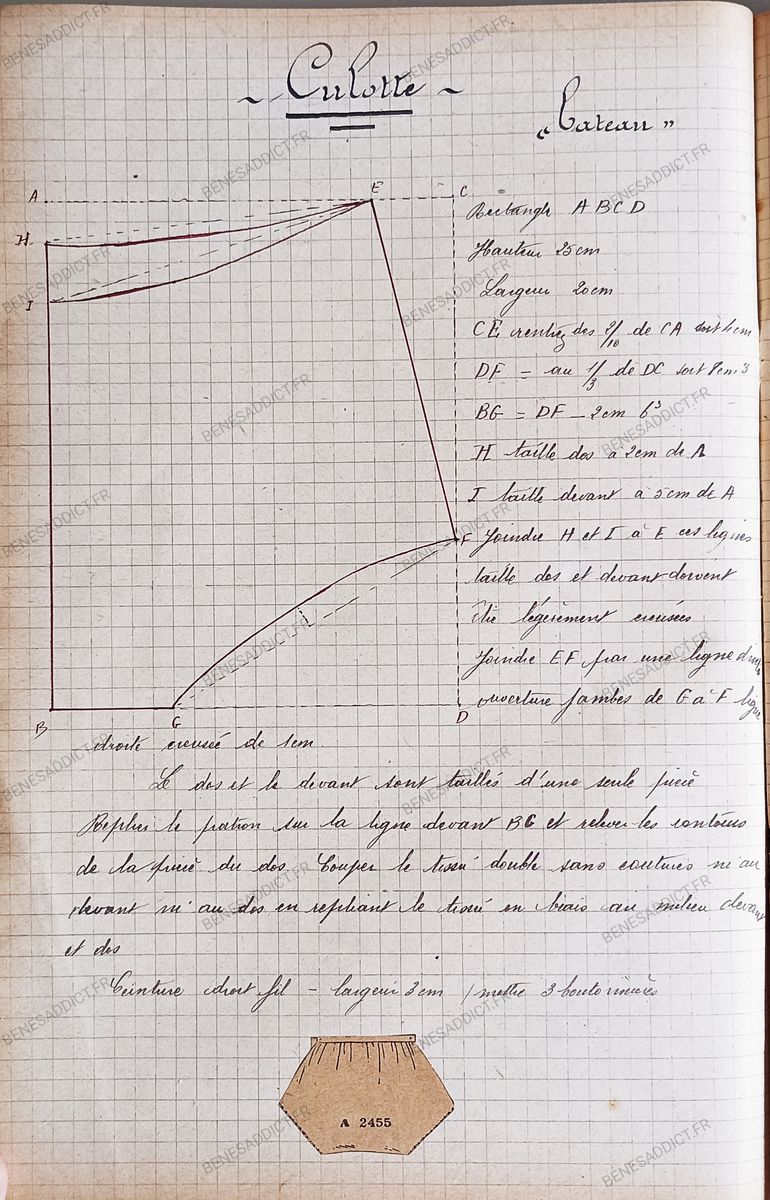 ~ Culotte ~
„ bateau "
A
E
C
H
I
F
B
G
D
Rectangle A B C D
Hauteur 25cm
Largeur 20cm
CE rentrez des 2/10 de CA soit 4cm
DF = au 1/3 de DC soit 8cm 3
BG = DF - 2cm 6 3
H taille dos à 2cm de A
I taille devant à 5cm de A
Joindre H et I à E ces lignes
taille dos et devant doivent
être légèrement creusées
Joindre EF par une ligne droite
ouverture jambes de G à F ligne
droite creusée de 1cm.
Le dos et le devant sont taillés d'une seule pièce
Replier le patron sur la ligne devant BG et relever les contours
de la pièce du dos. Couper le tissu double sans coutures ni au
devant ni au dos en repliant le tissu en biais au milieu devant
et dos
Ceinture droit fil - largeur 3cm / mettre 3 boutonnières
A 2455
BENESADDICT.FR